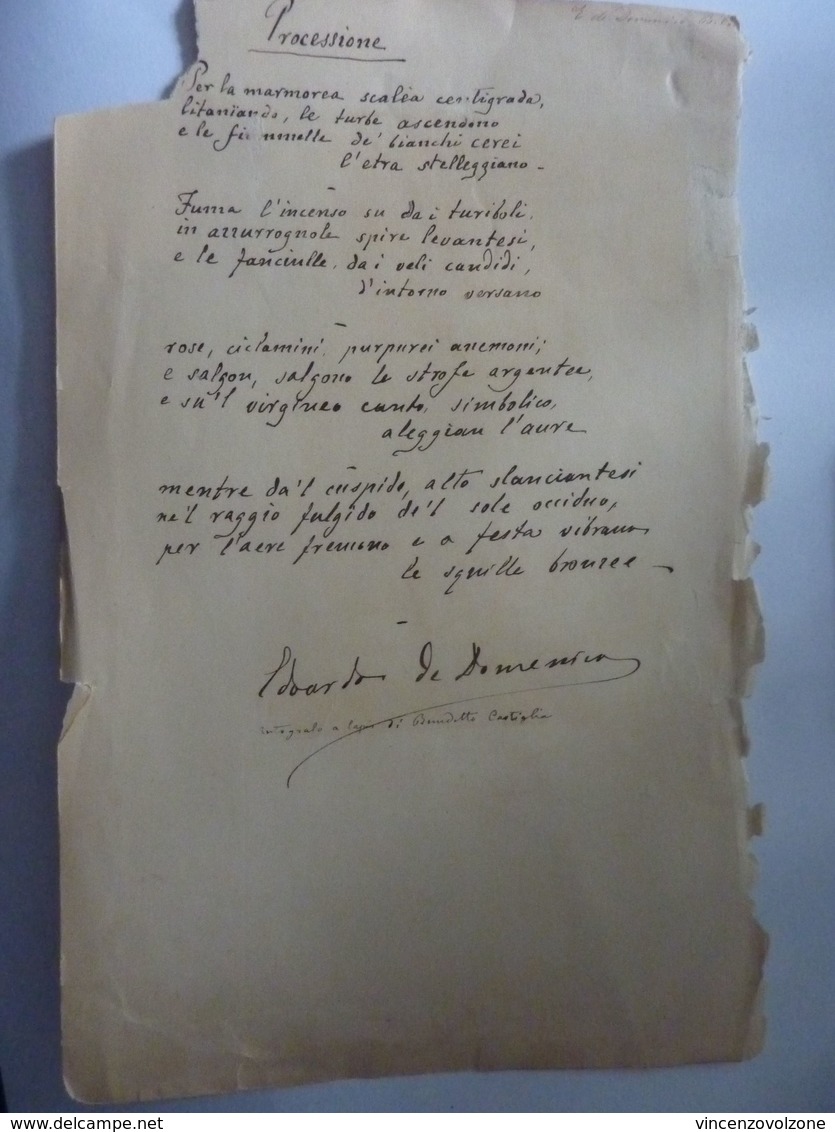 Processione
Per la marmorea scalèa centigrada,
litaniando, le turbe ascendono
e le fiammelle de' bianchi cerei
l'etra stelleggiano -
Fuma l'incenso su da i turiboli,
in azzurrognole spire levantesi,
e le fanciulle, da i veli candidi,
d'intorno versano
rose, ciclamini, purpurei anemoni;
e salgon, salgono le strofe argentee,
e su'l virgineo canto, simbolico,
aleggian l'aure
mentre da'l cùspide, alto slanciantesi
ne'l raggio fulgido de'l sole occiduo,
per l'aere fremono e a festa vibrano
le squille bronzee -
Edoardo de Domenico
a di Benedetto Castiglia
delcampe.net
vincenzovolzone